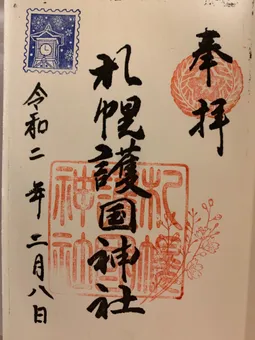 奉拝
札幌護国神社
令和二年十一月八日
札幌
神社